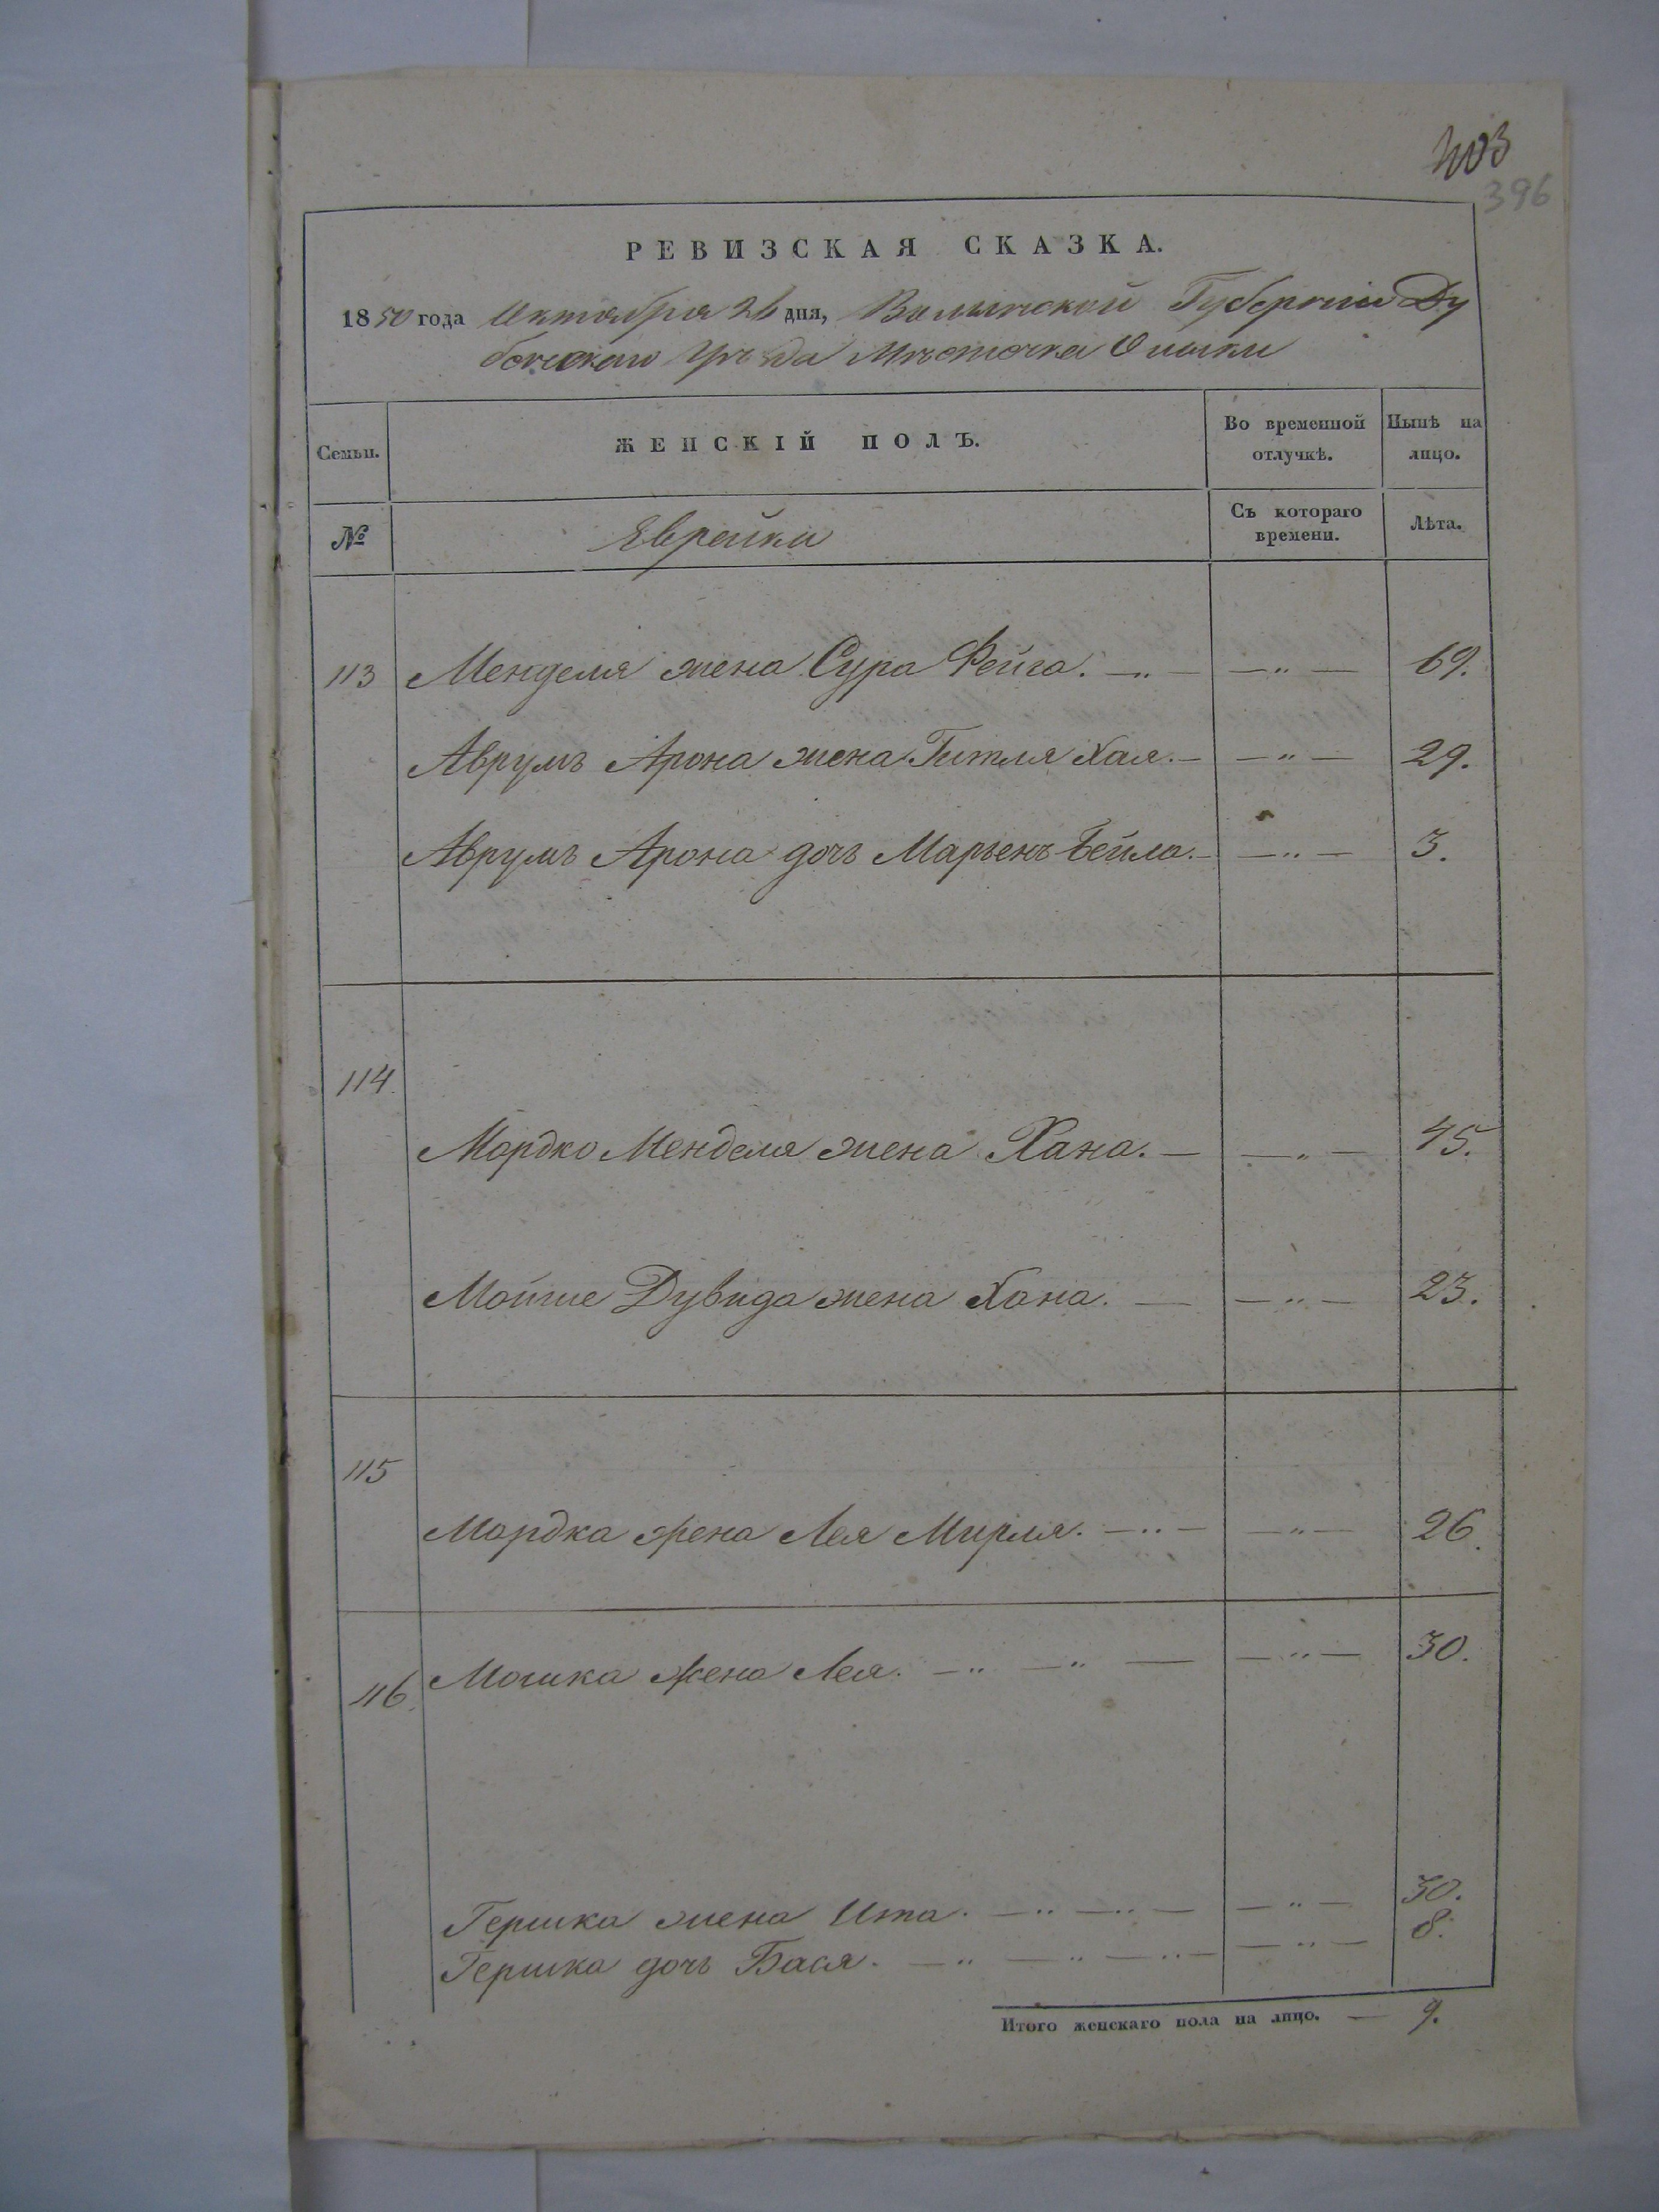 403
396
РЕВИЗСКАЯ СКАЗКА.
1850 года Октября 26 дня, Волынской Губернии Ду
бенскаго Уѣзда Мѣстечка Олыки
Семьи. ЖЕНСКІЙ ПОЛЪ. Во временной отлучкѣ. Нынѣ на лицо.
№ Еврейки Съ котораго времени. Лѣта.
113 Менделя жена Сура Фейга. — „ — — „ — 69.
Аврумъ Арона жена Гитля Хая. — — „ — 29.
Аврумъ Арона дочь Марьемъ Бейла. — — „ — 3.
114.
Мордко Менделя жена Хана. — — „ — 45.
Мойше Дувида жена Хана. — — „ — 23.
115
Мордка жена Лея Мирля. — „ — — „ — 26.
116. Мошка жена Лея. — „ — „ — — „ — 30.
Гершка жена Ита. — „ — „ — — „ — 30.
Гершка дочь Бася. — „ — „ — „ — — „ — 8.
Итого женскаго пола на лицо. — 9.